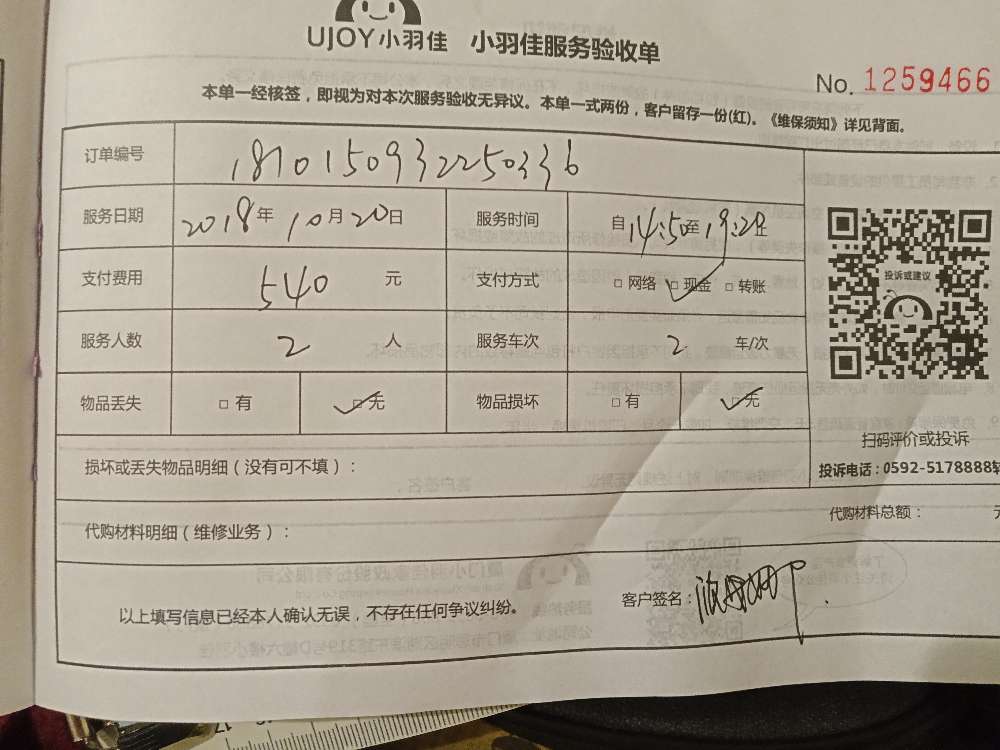 UJOY小羽佳 小羽佳服务验收单
No. 1259466
本单一经核签，即视为对本次服务验收无异议。本单一式两份，客户留存一份(红)。《维保须知》详见背面。
订单编号 1810150932250336
服务日期 2018年10月20日 服务时间 自14:50至19:20止
支付费用 540 元 支付方式 □ 网络 □ 现金 □ 转账
投诉或建议
服务人数 2 人 服务车次 2 车/次
物品丢失 □ 有 □ 无 物品损坏 □ 有 □ 无
扫码评价或投诉
损坏或丢失物品明细（没有可不填）：
投诉电话：0592-5178888转
代购材料明细（维修业务）： 代购材料总额： 元
以上填写信息已经本人确认无误，不存在任何争议纠纷。 客户签名：